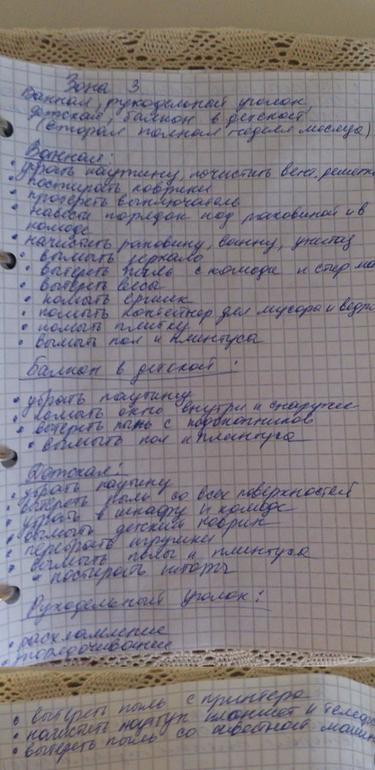 Зона 3
Ванная, рукодельный уголок,
детская, балкон в детской
(вторая полная неделя месяца)
Ванная:
• убрать паутину, почистить вент. решетк
• постирать коврики
• протереть выключатель
• навести порядок под раковиной и в
комоде
• начистить раковину, ванну, унитаз
• вымыть зеркало
• вытереть пыль с комода и стир. ма
• вытереть весы
• помыть ершик
• помыть контейнер для мусора и ведро
• помыть плитку
• вымыть пол и плинтуса
Балкон в детской:
• убрать паутину
• помыть окно внутри и снаружи
• вытереть пыль с подоконников
• вымыть пол и плинтуса
Детская:
• убрать паутину
• вытереть пыль со всех поверхностей
• убрать в шкафу и комоде
• вымыть детский коврик
• перебрать игрушки
• вымыть полы и плинтуса
• постирать шторы
Рукодельный уголок:
• расхламление
•
• вытереть пыль с принтера
• начистить ноутбук планшет и телефо
• вытереть пыль со швейной машин